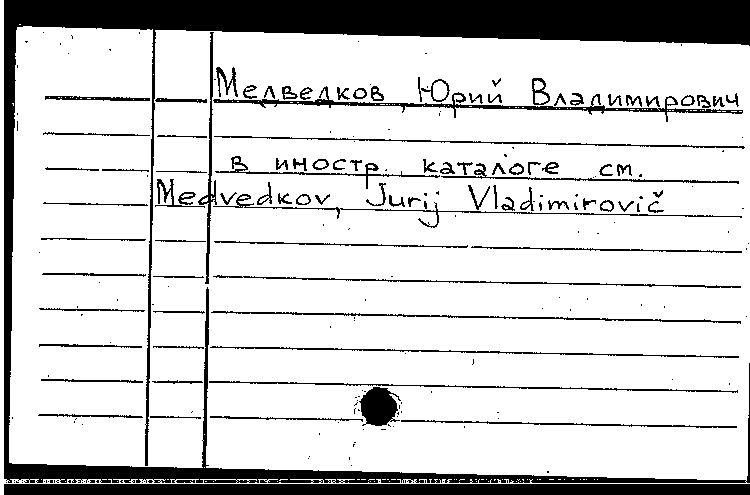 Медведков, Юрий Владимирович
в иностр. каталоге см.
Medvedkov, Jurij Vladimirovič